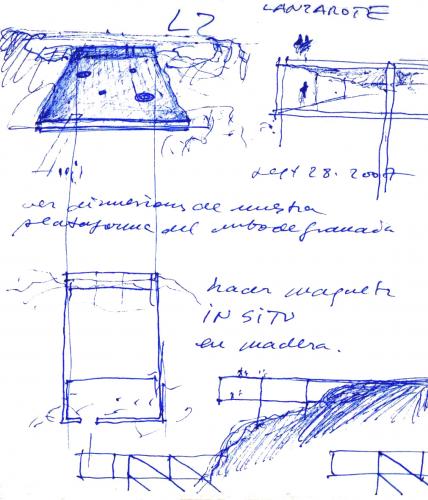 LZ
LANZAROTE
Sept 28. 2007
ver dimensions de nuestra
plataforma del cubo de granada
hacer maqueta
IN SITU
en madera.